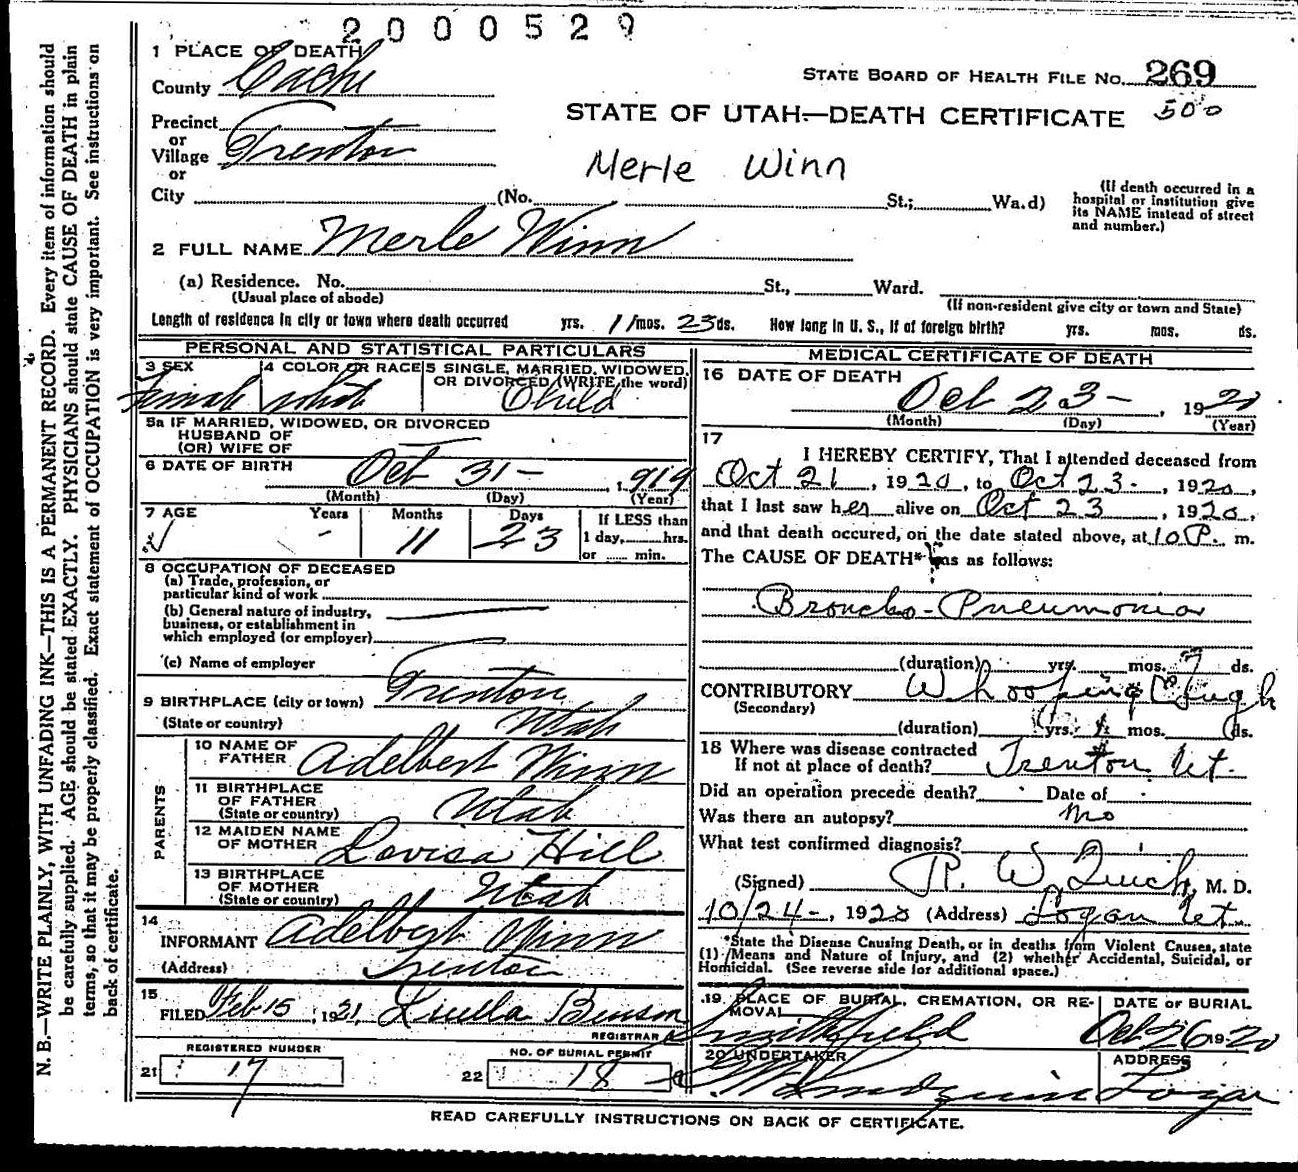 2000529
1 PLACE OF DEATH
County Cache
STATE BOARD OF HEALTH FILE No. 269
500
STATE OF UTAH—DEATH CERTIFICATE
Precinct
or
Village Trenton
or
Merle Winn
City (No. St.; Wa.d)
(If death occurred in a
hospital or institution give
its NAME instead of street
and number.)
2 FULL NAME Merle Winn
(a) Residence. No. St., Ward.
(Usual place of abode)
(If non-resident give city or town and State)
Length of residence in city or town where death occurred yrs. 11 mos. 23 ds. How long in U. S., if of foreign birth? yrs. mos. ds.
PERSONAL AND STATISTICAL PARTICULARS
3 SEX
Female
4 COLOR OR RACE
white
5 SINGLE, MARRIED, WIDOWED,
OR DIVORCED (WRITE the word)
Child
5a IF MARRIED, WIDOWED, OR DIVORCED
HUSBAND OF
(OR) WIFE OF
6 DATE OF BIRTH Oct 31 - , 1919
(Month) (Day) (Year)
7 AGE Years Months Days
- 11 23
If LESS than
1 day, hrs.
or min.
8 OCCUPATION OF DECEASED
(a) Trade, profession, or
particular kind of work
(b) General nature of industry,
business, or establishment in
which employed (or employer)
(c) Name of employer
9 BIRTHPLACE (city or town) Trenton
(State or country) Utah
PARENTS
10 NAME OF
FATHER Adelbert Winn
11 BIRTHPLACE
OF FATHER
(State or country) Utah
12 MAIDEN NAME
OF MOTHER Lovisa Hill
13 BIRTHPLACE
OF MOTHER
(State or country) Utah
14
INFORMANT Adelbert Winn
(Address) Trenton
15
FILED Feb 15, 1921, Luella Benson
REGISTRAR
REGISTERED NUMBER
21 17
NO. OF BURIAL PERMIT
22 18
MEDICAL CERTIFICATE OF DEATH
16 DATE OF DEATH
Oct 23 - , 1920
(Month) (Day) (Year)
17
I HEREBY CERTIFY, That I attended deceased from
Oct 21, 1920, to Oct 23 -, 1920,
that I last saw her alive on Oct 23, 1920,
and that death occured, on the date stated above, at 10 P. m.
The CAUSE OF DEATH* was as follows:
Broncho-Pneumonia
(duration) yrs. mos. 7 ds.
CONTRIBUTORY Whooping Cough
(Secondary)
(duration) yrs. mos. ds.
18 Where was disease contracted
If not at place of death? Trenton Ut.
Did an operation precede death? Date of
Was there an autopsy? no
What test confirmed diagnosis?
(Signed) R. W. , M. D.
10/24-, 1920 (Address) Logan Ut.
*State the Disease Causing Death, or in deaths from Violent Causes, state
(1) Means and Nature of Injury, and (2) whether Accidental, Suicidal, or
Homicidal. (See reverse side for additional space.)
19 PLACE OF BURIAL, CREMATION, OR RE-
MOVAL
Smithfield
DATE OF BURIAL
Oct 26 1920
20 UNDERTAKER
ADDRESS
Logan
READ CAREFULLY INSTRUCTIONS ON BACK OF CERTIFICATE.
N. B.—WRITE PLAINLY, WITH UNFADING INK—THIS IS A PERMANENT RECORD. Every item of information should
be carefully supplied. AGE should be stated EXACTLY. PHYSICIANS should state CAUSE OF DEATH in plain
terms, so that it may be properly classified. Exact statement of OCCUPATION is very important. See instructions on
back of certificate.